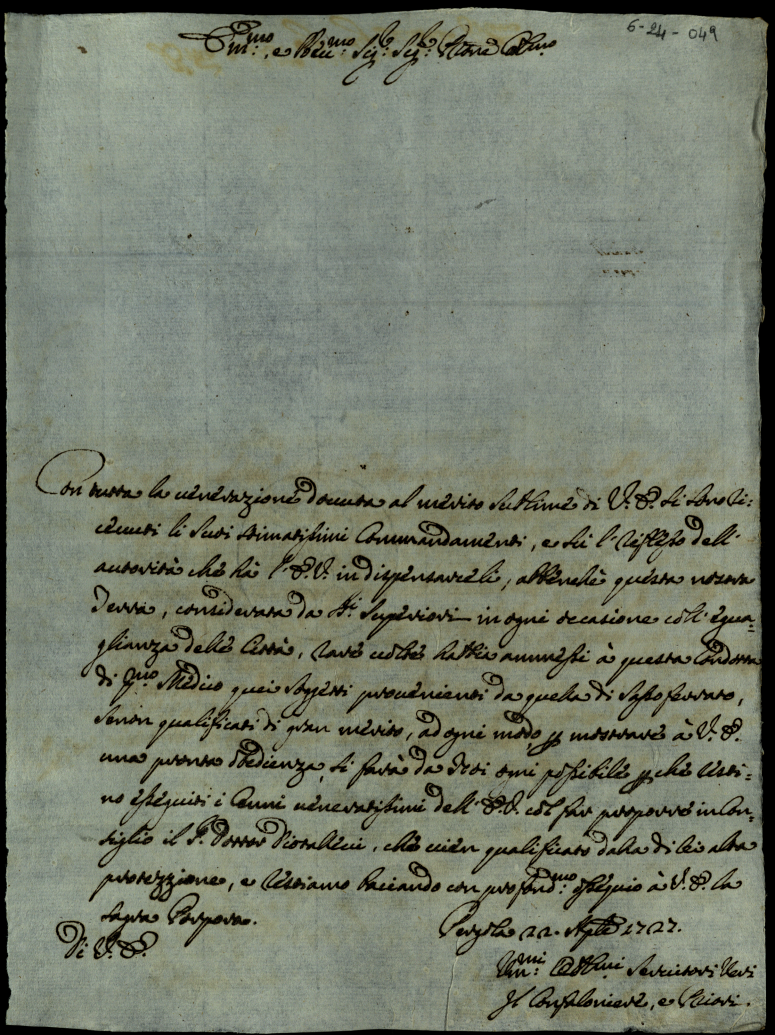 6-24-049
Em.mo, e Rev.mo Sig.r Sig.r Prone Col.mo
Con tutta la venerazione dovuta al merito sublime di V. E. si sono ri=
cevuti li suoi stimatissimi Commandamenti, e sù l' riflesso dell'
autorità che hà l' E. V. in dispensarceli, abbenchè questa nostra
Terra, considerata da SS.ri Superiori in ogni occasione coll' egua=
glianza delle Città, rare volte habbia ammessi à questa Condotta
di P.mo Medico quei soggetti provenienti da quella di Sassoferrato,
se non qualificati di gran merito, ad ogni modo p mostrare à V. E.
una pronta obedienza, si farà da Noi ogni possibile p che resti=
no eseguiti i Cenni veneratissimi dell' E. V. col far proporre in Con=
siglio il S. Dottor, che vien qualificato dalla di lei alta
protezzione, e restiamo baciando con profond.mo ossequio à V. E. la
Sagra Porpora.
Pergola 22. Ag.to 1727.
Di V. E.
Um.mi Servitori Veri
Il Confaloniere, e Priori.